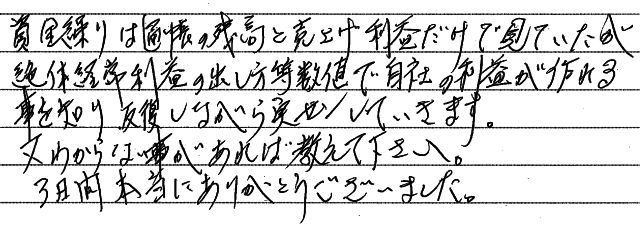 資金繰りは通帳の残高と売上げ利益だけで見ていたが
絶体経常利益の出し方等数値で自社の利益が作れる
事を知り反復しながら実せんしていきます。
又わからない事があれば教えて下さい。
3日間本当にありがとうございました。